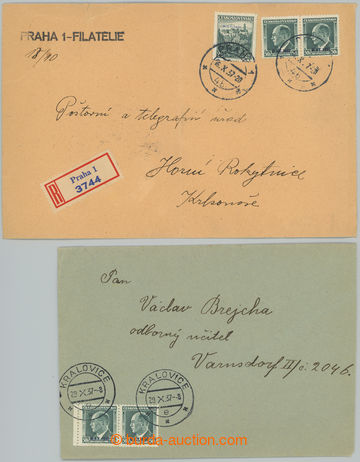 PRAHA 1-FILATELIE
18/10
ČESKOSLOVENSKO
PRAHA 1
Poštovní a telegrafní úřad
Horní Rokytnice
Krkonoše
R
Praha 1
3744
Pan
Václav Brejcha
odborný učitel
Varnsdorf II/č. 2046.
KRALOVICE
29.X.37-8
e
KRALOVICE
29.X.37-8
e
aurea-auction.com